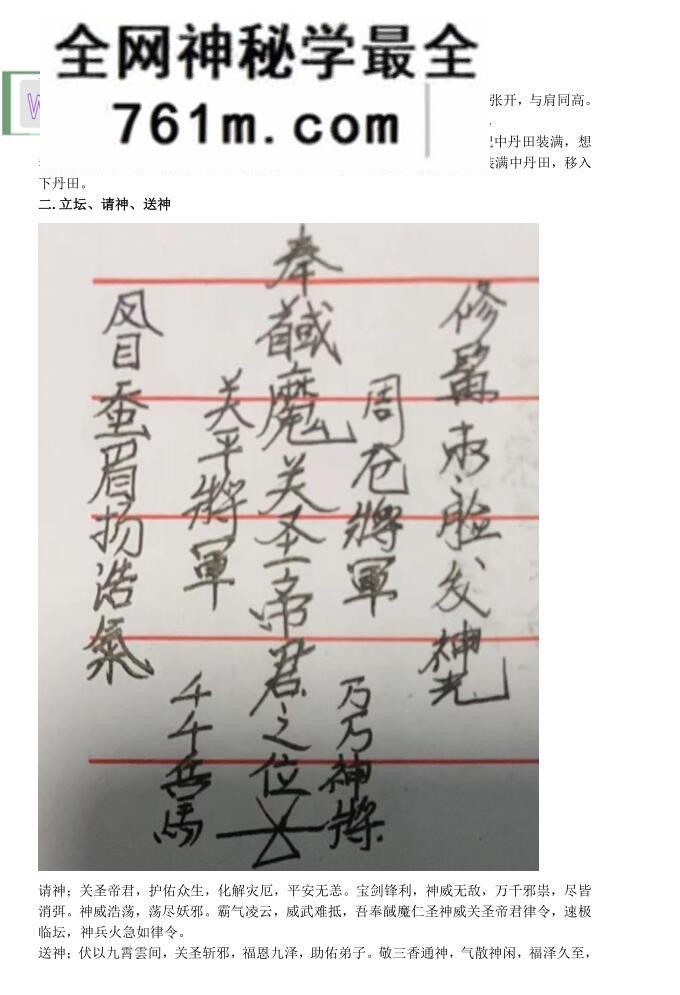 全网神秘学最全
761m.com
张开，与肩同高。
中丹田装满，想
装满中丹田，移入
下丹田。
二.立坛、请神、送神
修髯赤脸发神光
周仓将軍
万万神将
奉
馘魔关圣帝君之位
关平将軍
千千兵馬
凤目蚕眉扬浩氣
请神；关圣帝君，护佑众生，化解灾厄，平安无恙。宝剑锋利，神威无敌，万千邪祟，尽皆
消弭。神威浩荡，荡尽妖邪。霸气凌云，威武难抵，吾奉馘魔仁圣神威关圣帝君律令，速极
临坛，神兵火急如律令。
送神；伏以九霄雲间，关圣斩邪，福恩九泽，助佑弟子。敬三香通神，气散神闲，福泽久至，